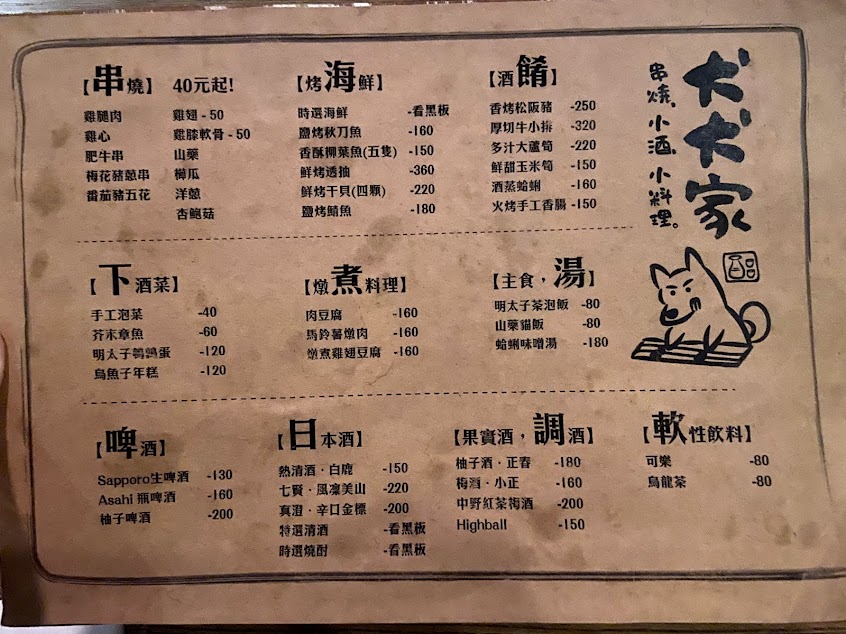 犬犬家
串燒、小酒、小料理。
【串燒】 40元起!
雞腿肉
雞心
肥牛串
梅花豬蔥串
番茄豬五花
雞翅 - 50
雞膝軟骨 - 50
山藥
櫛瓜
洋蔥
杏鮑菇
【烤海鮮】
時選海鮮 -看黑板
鹽烤秋刀魚 -160
香酥柳葉魚(五隻) -150
鮮烤透抽 -360
鮮烤干貝(四顆) -220
鹽烤鯖魚 -180
【酒餚】
香烤松阪豬 -250
厚切牛小排 -320
多汁大蘆筍 -220
鮮甜玉米筍 -150
酒蒸蛤蜊 -160
火烤手工香腸 -150
【下酒菜】
手工泡菜 -40
芥末章魚 -60
明太子鵪鶉蛋 -120
烏魚子年糕 -120
【燉煮料理】
肉豆腐 -160
馬鈴薯燉肉 -160
燉煮雞翅豆腐 -160
【主食，湯】
明太子茶泡飯 -80
山藥貓飯 -80
蛤蜊味噌湯 -180
【啤酒】
Sapporo生啤酒 -130
Asahi 瓶啤酒 -160
柚子啤酒 -200
【日本酒】
熱清酒 · 白鹿 -150
七賢 · 風凜美山 -220
真澄 · 辛口金標 -200
特選清酒 -看黑板
時選燒酎 -看黑板
【果實酒，調酒】
柚子酒 · 正春 -180
梅酒 · 小正 -160
中野紅茶梅酒 -200
Highball -150
【軟性飲料】
可樂 -80
烏龍茶 -80